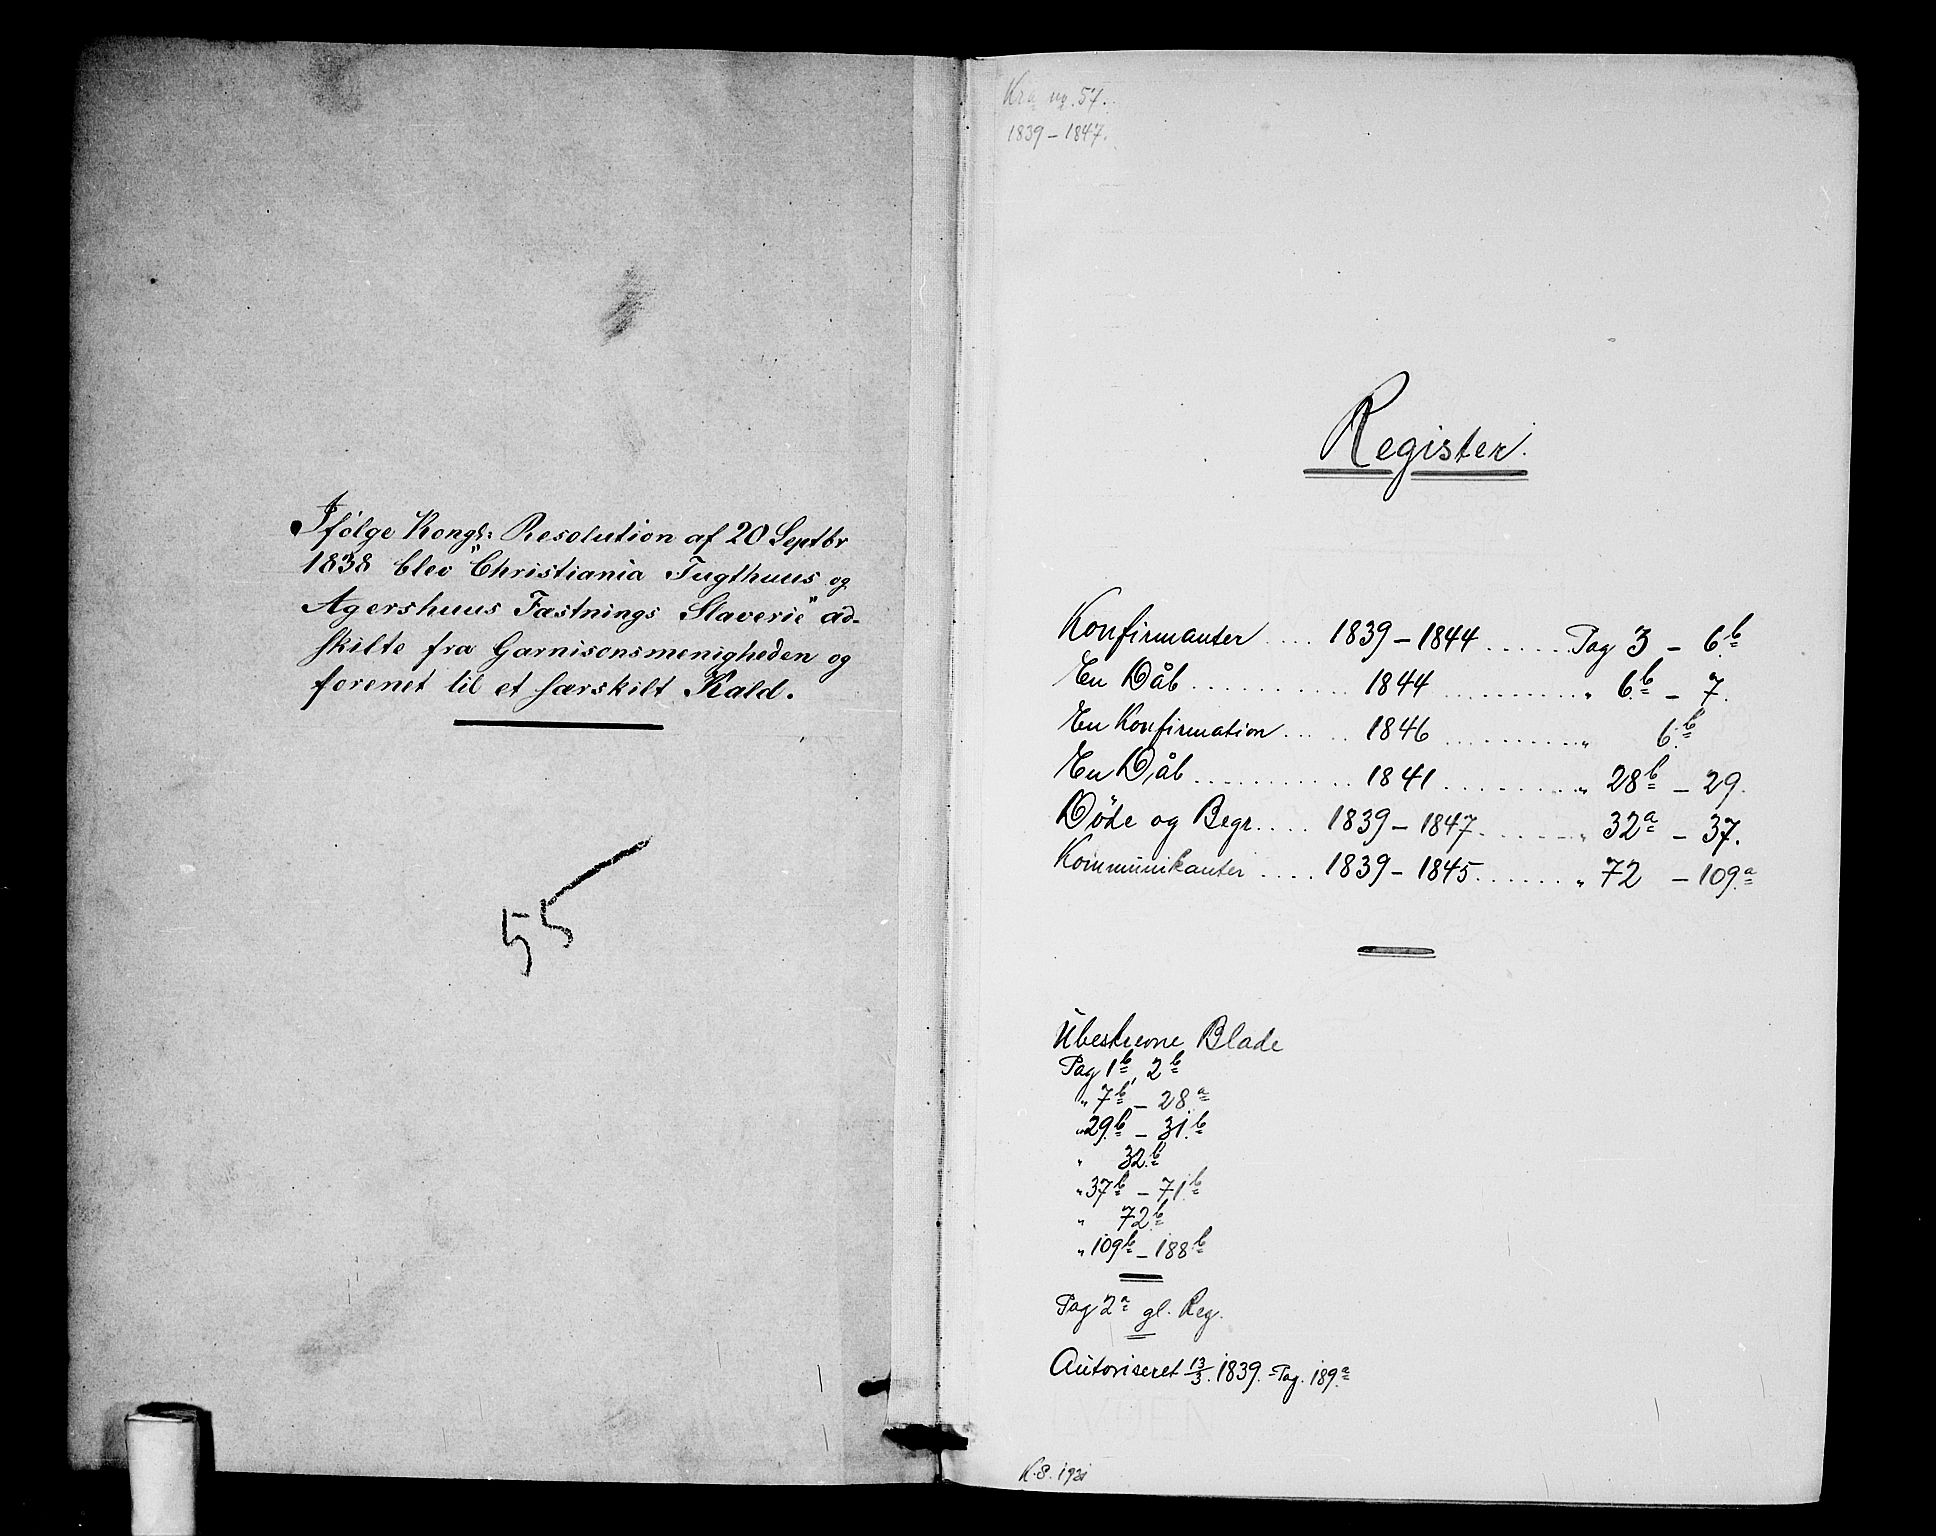 Ifølge Kongl: Resolution af 20 Septbr
1838 blev "Christiania Tugthuus og
Agershuus Fæstnings Slaverie" ad-
skilte fra Garnisonsmenigheden og
forenet til et særskilt Kald.
55
Kra no. 57.
1839 - 1847.
Register.
Konfirmanter .... 1839 - 1844 ...... Pag 3 - 6.b
En Dåb ............ 1844 ........... " 6.b - 7.
En Konfirmation ..... 1846 ........... " 6.b
En Dåb ............ 1841 ........... " 28b - 29.
Døde og Begr. .... 1839 - 1847 ....... " 32a - 37.
Kommunikanter .... 1839 - 1845 ....... " 72 - 109.a
Ubeskrevne Blade
Pag 1b, 2b
" 7b - 28a
" 29.b - 31.b
" 32.b
" 37b - 71.b
" 72b
" 109b - 188b
Pag 2a gl. Reg.
Autoriseret 13/3. 1839. - Pag. 189.a
K. 8. 1931